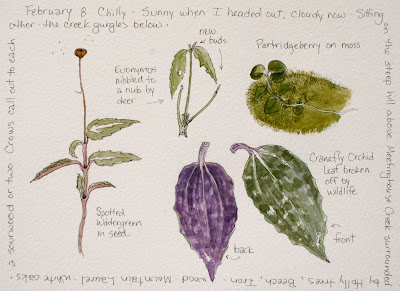 February 8 Chilly · Sunny when I headed out, cloudy now · Sitting
on the steep hill above Meetinghouse Creek surrounded
by Holly trees, Beech, Iron wood · Mountain Laurel · White oaks ·
a sourwood or two Crows call out to each
other · the creek gurgles below ·
new
buds
Euonymos
nibbled to
a nub by
deer
Partridgeberry on moss
Spotted
Wintergreen
in seed
Cranefly Orchid
leaf broken
off by
wildlife
back
front